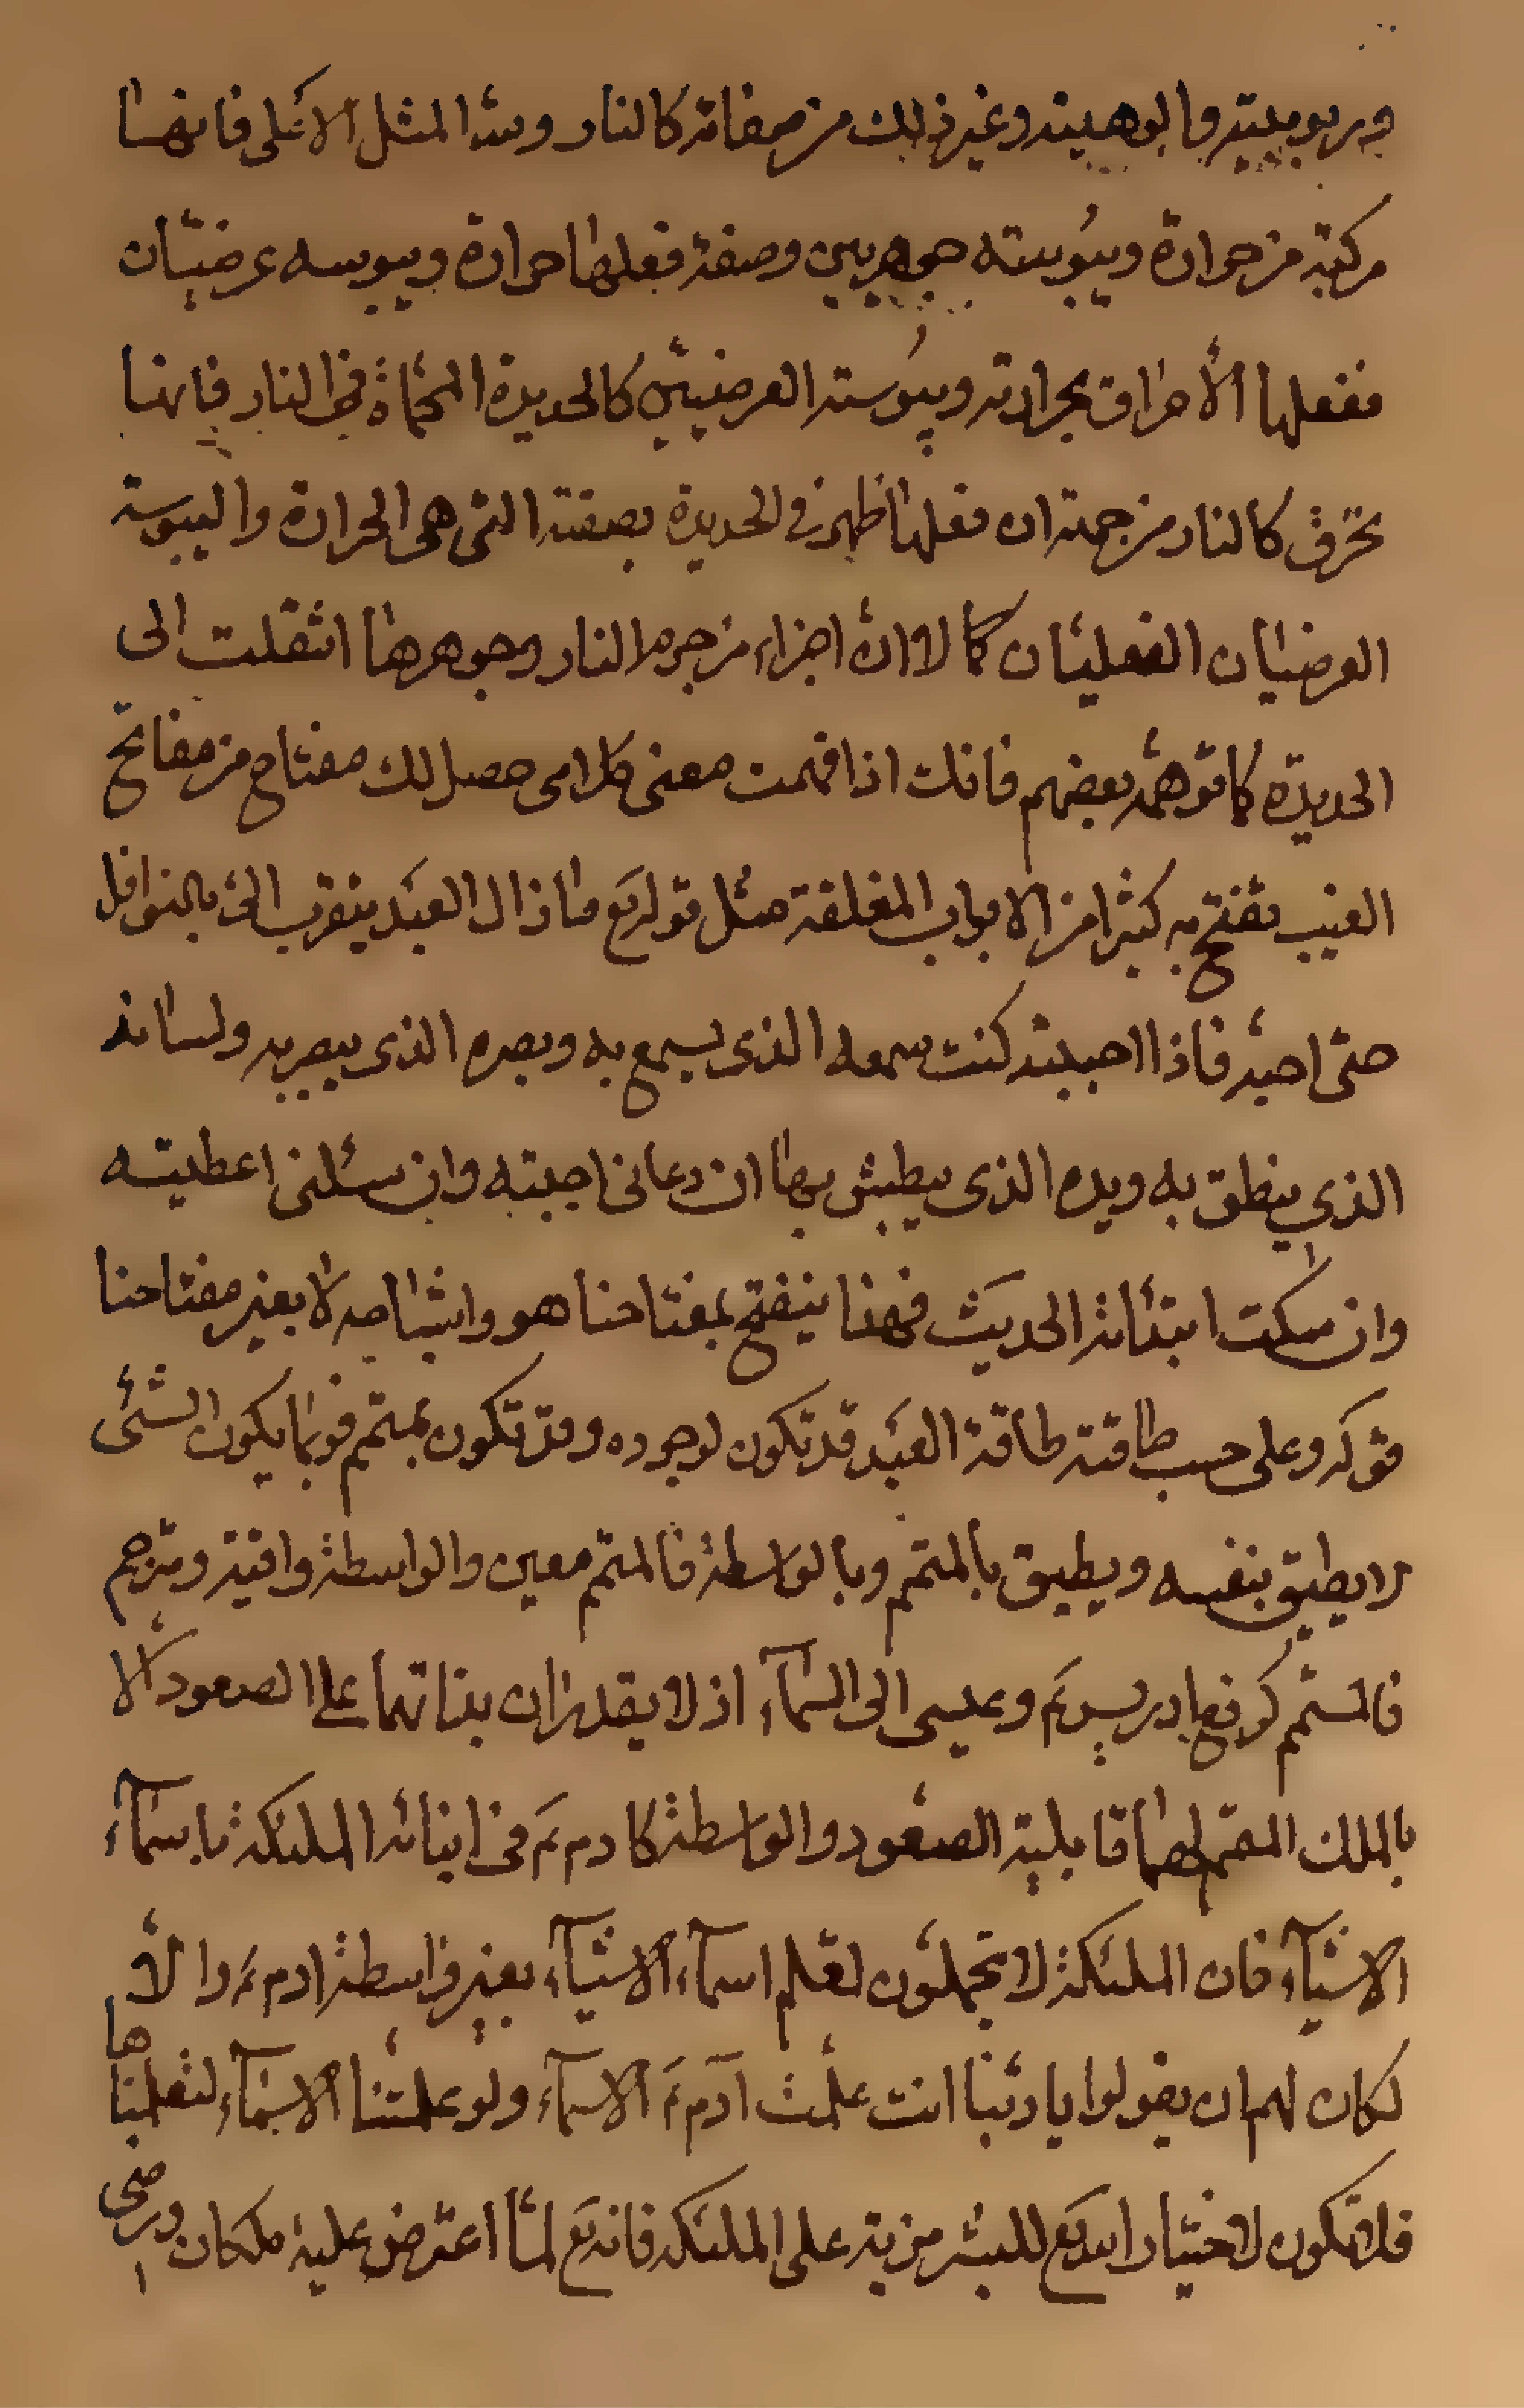 وربوبيته والوهيته وغير ذلك من صفاته كالنار ولله المثل الاعلى فانها
مركبة من حرارة ويبوسته جوهريين وصفة فعلها حرارة ويبوسه عرضيّان
ففعلها الأحراق بحرارته ويبوسته العرضيّين كالحديدة المحماة في النار فانها
تحرق كالنار من جهة ان فعلها ظهر في الحديدة بصفته التي هي الحرارة واليبوسة
العرضيان الفعليّان كما لا انّ اجزاء من جرم النار وجوهرها انتقلت الى
الحديدة كما توهّمه بعضهم فانك اذا فهمت معنى كلامى حصل لك مفتاح من مفاتح
الغيب تفتح به كثيرا من الابواب المغلقة مثل قوله تع ما زال العبد يتقرب الىّ بالنوافل
حتى احبّه فاذا احببته كنت سمعه الذى يسمع به وبصره الذى يبصر به ولسانه
الذي ينطق به ويده الذى يبطش بها ان دعانى اجبته وان سئلنى اعطيته
وان سكت ابتدأته الحديث فهذا ينفتح بمفتاحنا هو وامثاله لا بغير مفتاحنا
قوله وعلى حسب طاقته طاقة العبد قد تكون لوجوده وقد تكون بمتمم فربما يكون الشئ
لا يطيق بنفسه ويطيق بالمتمم وبالواسطة فالمتمم معين والواسطة واقية ومترجم
فالمتمم كرفع ادريس ع وعيسى الى السّمآء اذ لا يقدران بذاتهما على الصعود الا
بالملك المتمم لهما قابلية الصعود والواسطة كادم ع في انبائه الملئكة باسمآء
الاشيآء فان الملئكة لا تحملون لتعلم اسمآء الاشيآء بغير واسطة ادم ع والا
لكان لهم ان يقولوا يا ربّنا انت علّمت آدم ع الاسمآء ولو علمتنا الاسمآء لتعلمناها
فلا تكون لاختيار الله تع للبشر مزية على الملئكه فانه تع لمّا اعترض عليه ملكان ورضى